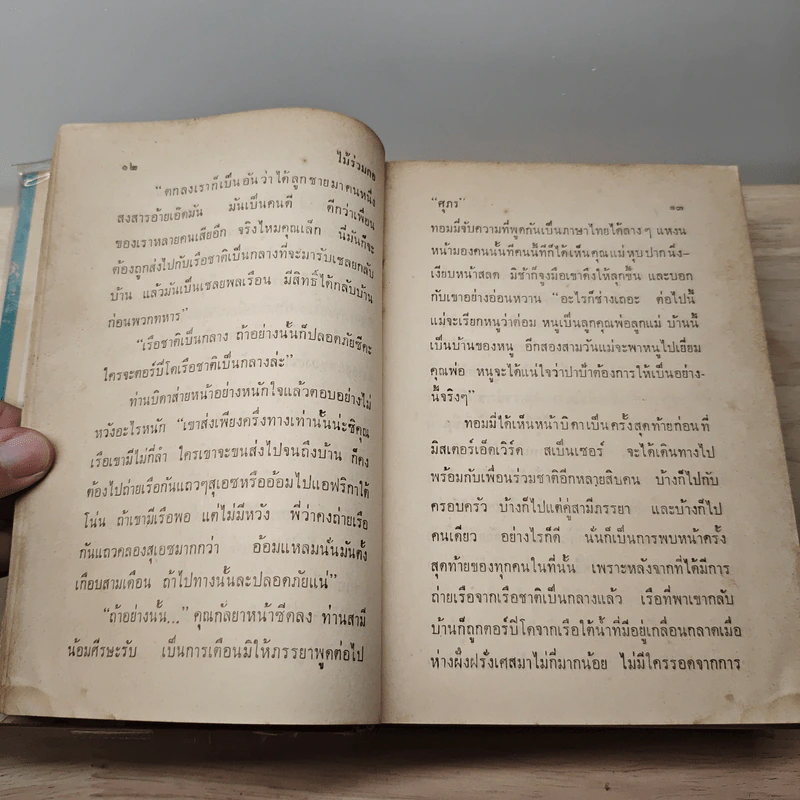 ๑๒
ไม้ร่วมกอ
“ตกลงเราก็เป็นอันว่าได้ลูกชายมาคนหนึ่ง
สงสารอ้ายเอ๊ดมัน มันเป็นคนดี ดีกว่าเพื่อน
ของเราหลายคนเสียอีก จริงไหมคุณเล็ก นี่มันก็จะ
ต้องถูกส่งไปกับเรือชาติเป็นกลางที่จะมารับเชลยกลับ
บ้าน แล้วมันเป็นเชลยพลเรือน มีสิทธิ์ได้กลับบ้าน
ก่อนพวกทหาร”
“เรือชาติเป็นกลาง ถ้าอย่างนั้นก็ปลอดภัยซีคะ
ใครจะตอร์ปิโดเรือชาติเป็นกลางล่ะ”
ท่านบิดาส่ายหน้าอย่างหนักใจแล้วตอบอย่างไม่
หวังอะไรหนัก “เขาส่งเพียงครึ่งทางเท่านั้นน่ะซิคุณ
เรือเขามีไม่กี่ลำ ใครเขาจะขนส่งไปจนถึงบ้าน ก็คง
ต้องไปถ่ายเรือกันแถวๆสุเอซหรืออ้อมไปแอฟริกาใต้
โน่น ถ้าเขามีเรือพอ แต่ไม่มีหวัง พี่ว่าคงถ่ายเรือ
กันแถวคลองสุเอซมากกว่า อ้อมแหลมนั่นมันตั้ง
เกือบสามเดือน ถ้าไปทางนั้นละปลอดภัยแน่”
“ถ้าอย่างนั้น...” คุณกัลยาหน้าซีดลง ท่านสามี
น้อมศีรษะรับ เป็นการเตือนมิให้ภรรยาพูดต่อไป
“ศุภร”
๑๓
ทอมมี่จับความที่พูดกันเป็นภาษาไทยได้ลางๆ แหงน
หน้ามองคนนั้นทีคนนี้ทีก็ได้เห็นคุณแม่หุบปากนิ่ง—
เงียบหน้าสลด มิช้าก็จูงมือเขาดึงให้ลุกขึ้น และบอก
กับเขาอย่างอ่อนหวาน “อะไรก็ช่างเถอะ ต่อไปนี้
แม่จะเรียกหนูว่าต่อม หนูเป็นลูกคุณพ่อลูกแม่ บ้านนี้
เป็นบ้านของหนู อีกสองสามวันแม่จะพาหนูไปเยี่ยม
คุณพ่อ หนูจะได้แน่ใจว่าปาป๊าต้องการให้เป็นอย่าง-
นี้จริงๆ”
ทอมมี่ได้เห็นหน้าบิดาเป็นครั้งสุดท้ายก่อนที่
มิสเตอร์เอ็ดเวิร์ด สเป็นเซอร์ จะได้เดินทางไป
พร้อมกับเพื่อนร่วมชาติอีกหลายสิบคน บ้างก็ไปกับ
ครอบครัว บ้างก็ไปแต่คู่สามีภรรยา และบ้างก็ไป
คนเดียว อย่างไรก็ดี นั่นก็เป็นการพบหน้าครั้ง
สุดท้ายของทุกคนในที่นั้น เพราะหลังจากที่ได้มีการ
ถ่ายเรือจากเรือชาติเป็นกลางแล้ว เรือที่พาเขากลับ
บ้านก็ถูกตอร์ปิโดจากเรือใต้น้ำที่มีอยู่เกลื่อนกลาดเมื่อ
ห่างฝั่งฝรั่งเศสมาไม่กี่มากน้อย ไม่มีใครรอดจากการ